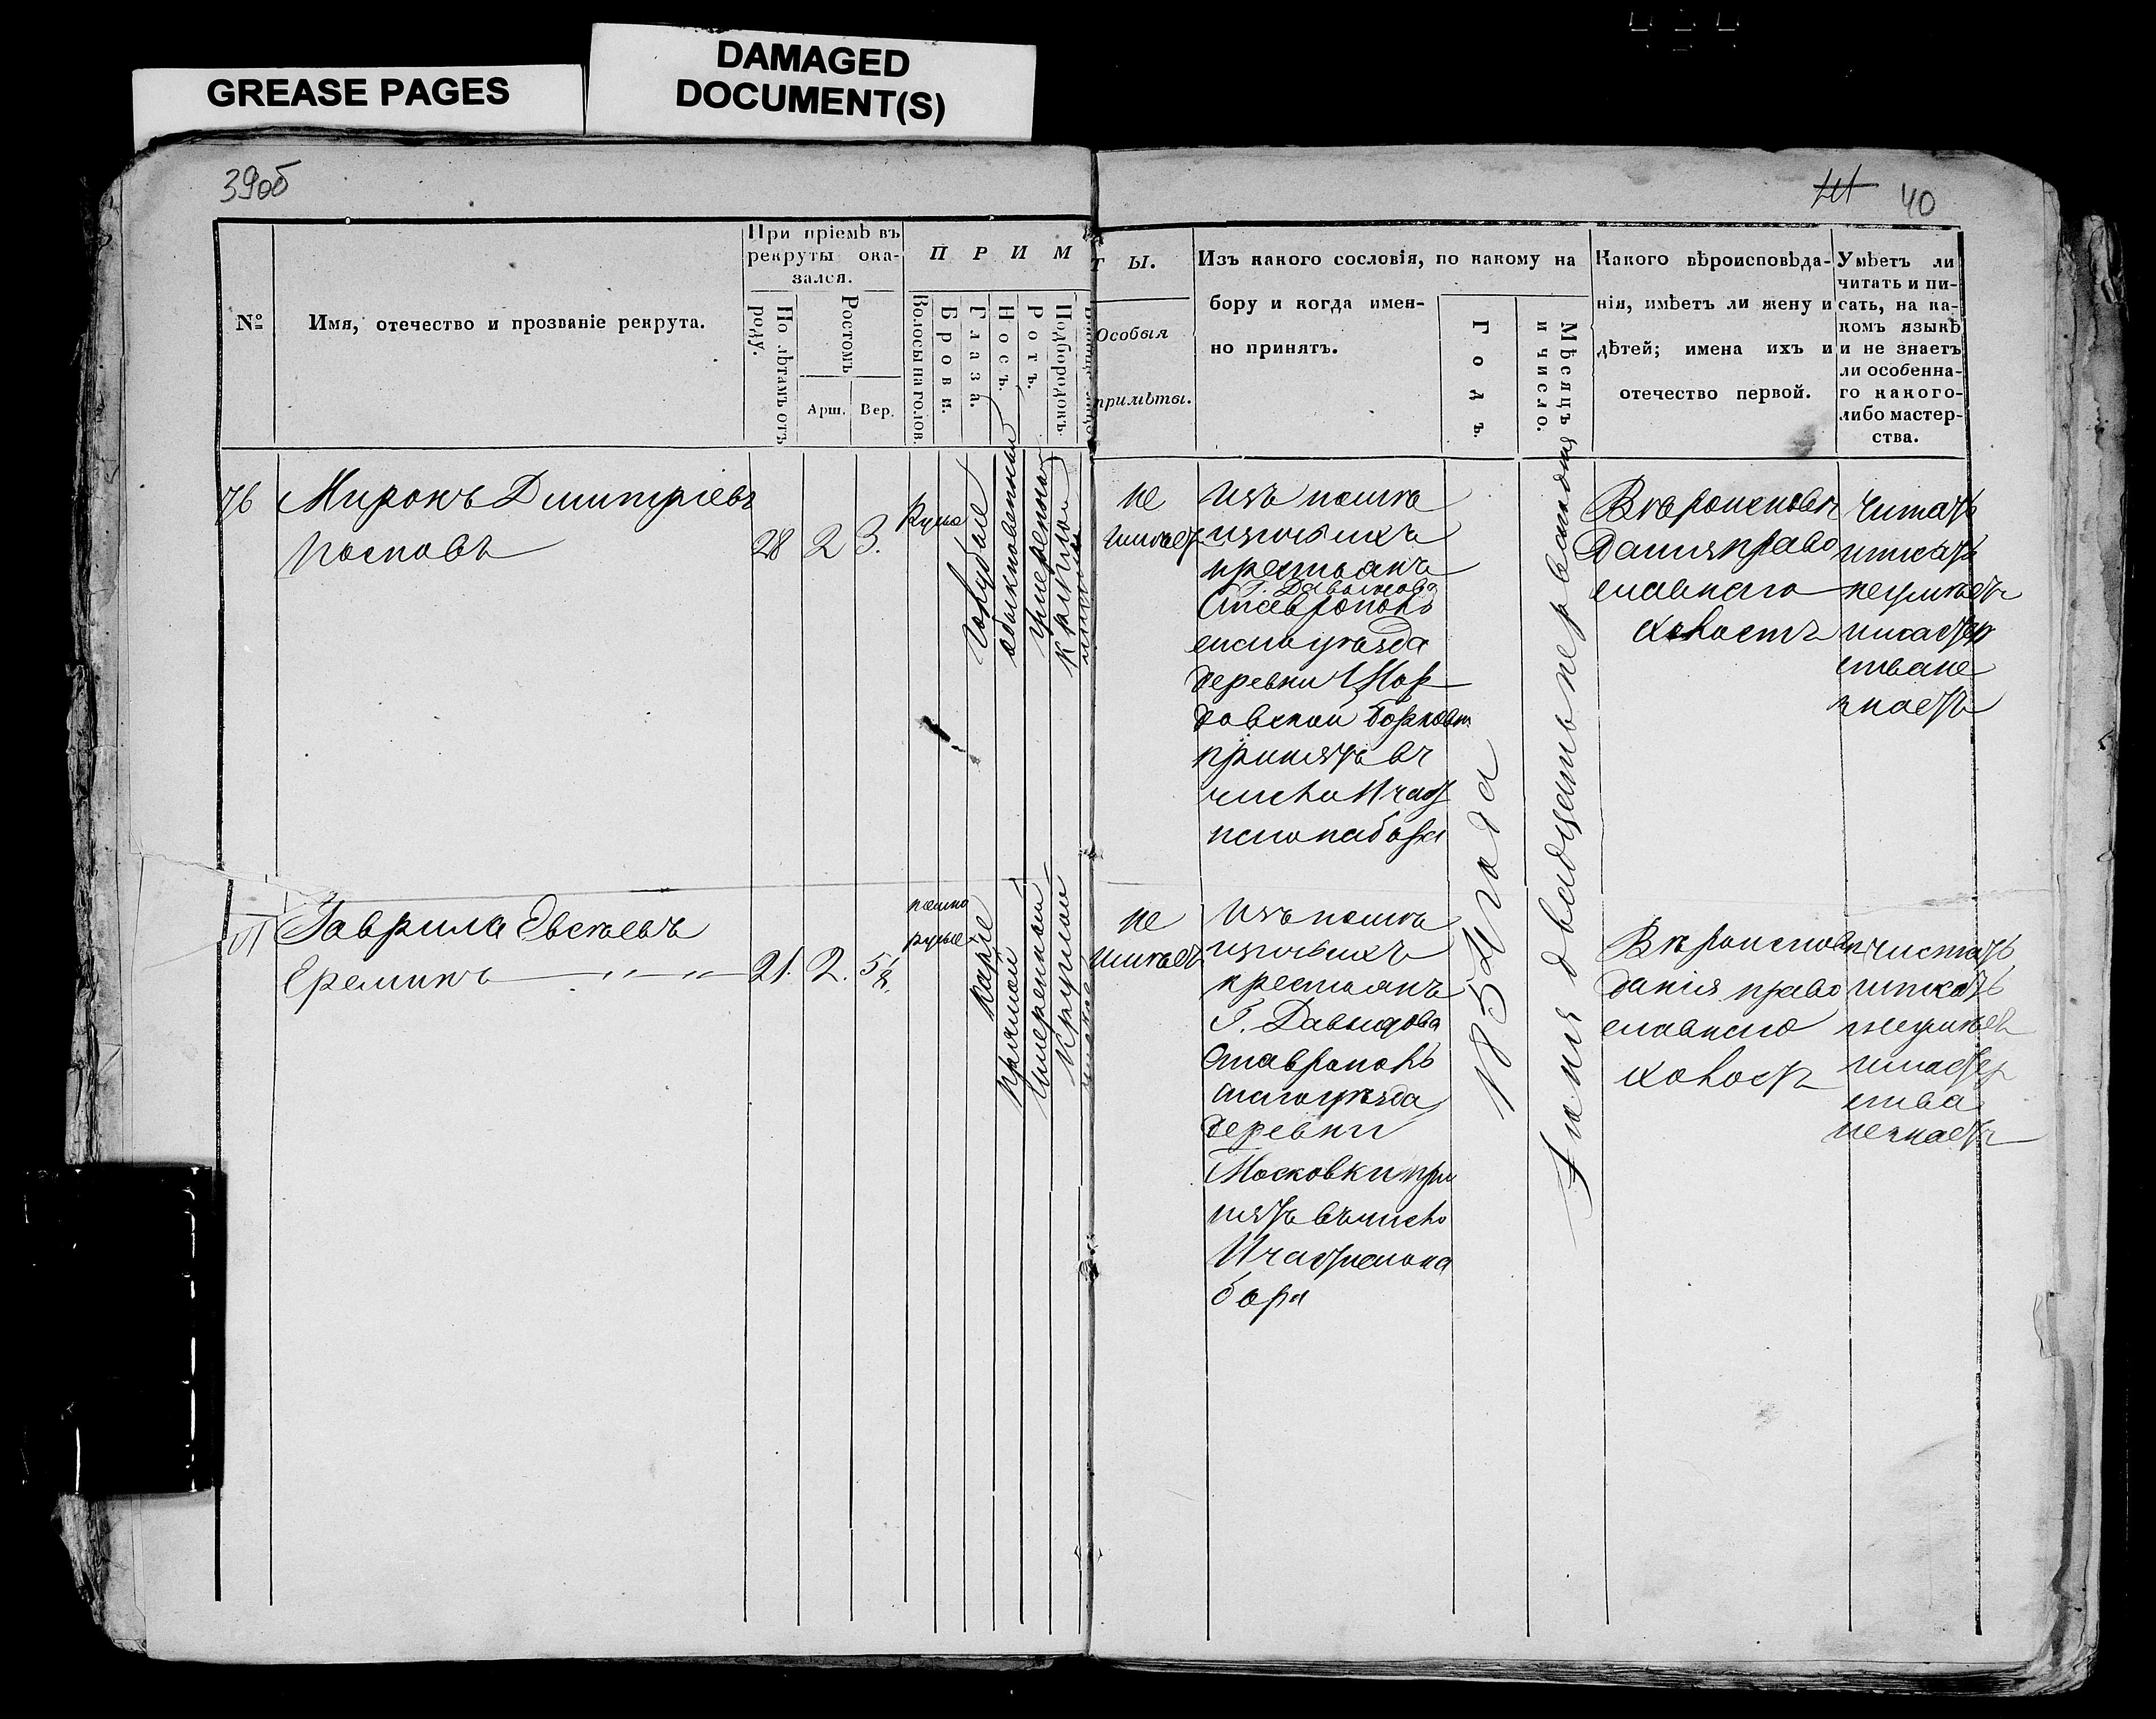 GREASE PAGES
DAMAGED
DOCUMENT(S)
39об
40
№
Имя, отечество и прозваніе рекрута.
При пріемѣ въ
рекруты ока-
зался.
По лѣтамъ отъ
роду.
Ростомъ
Арш.
Вер.
П Р И М
Волосы на голов.
Брови.
Глаза.
Носъ.
Ротъ.
Подбородокъ.
Т Ы.
Особыя
примѣты.
Изъ какого сословія, по какому на
бору и когда имен-
но принятъ.
Годъ.
Мѣсяцъ
и число.
Какого вѣроисповѣда-
нія, имѣетъ ли жену и
дѣтей; имена ихъ и
отечество первой.
Умѣетъ ли
читать и пи-
сать, на ка-
комъ языкѣ
и не знаетъ
ли особенна-
го какого-
либо мастер-
ства.
76
Миронъ Дмитріевъ
28
2
3.
голубые
обыкновенный
умеренной
круглой
не
имѣет
изъ помѣ
щичьихъ
крестьянъ
Г. Давыдова
Ставрополь
скаго уѣзда
деревни Мор
довской Борковки
принятъ въ
число 11 част
наго набора
1854 года
Апля двадцать перваго дня
Вѣроисповѣ
данія право
славнаго
холостъ
читать
писать
неумѣетъ
мастер
стване
знаетъ
Гаврила Евсѣевъ
Ереминъ
21.
2.
5 1/8.
темно
русые
каріе
прямой
умеренный
круглой
не
имѣетъ
Изъ помѣ
щичьихъ
крестьянъ
Г. Давыдова
Ставрополь
скаго уѣзда
деревни
Московки при
нятъ въ число
11 частнаго на
бора
Вѣроисповѣ
данія право
славнаго
холостъ
читать
писать
неумѣетъ
мастер
ства
незнаетъ